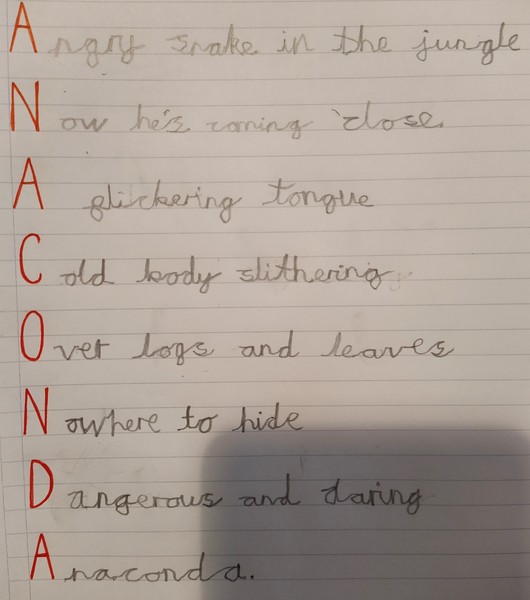 Angry snake in the jungle
Now he's coming close.
A flickering tongue
Cold body slithering
Over logs and leaves
Nowhere to hide
Dangerous and daring
Anaconda.